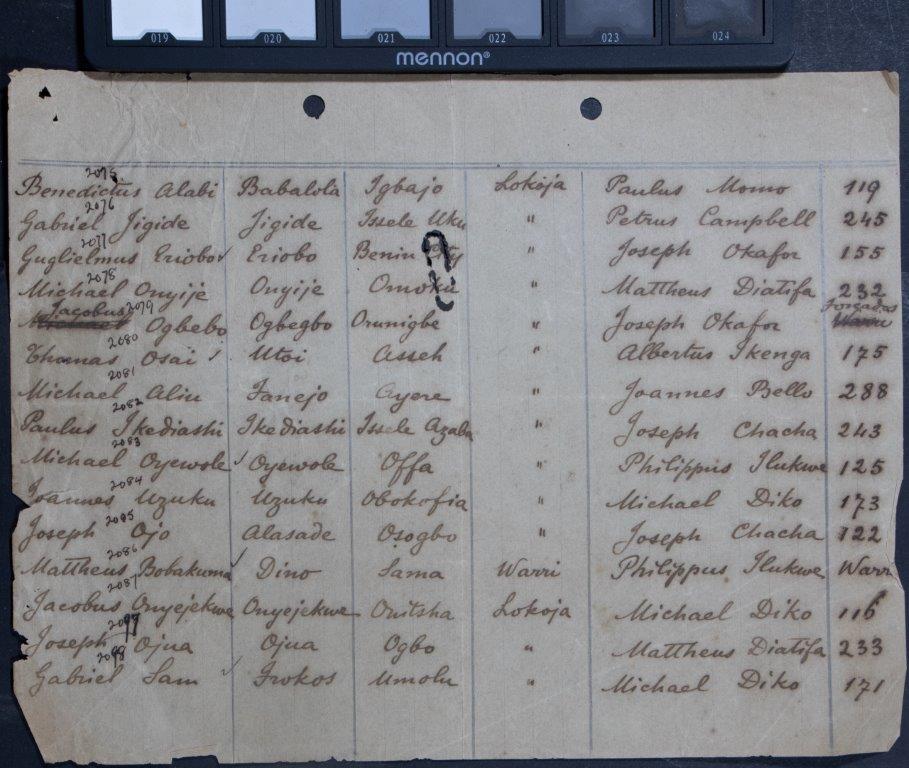 019 020 021 022 023 024
mennon®
2075
Benedictus Alabi Babalola Igbajo Lokoja Paulus Momo 119
2076
Gabriel Jigide Jigide Issele Uku " Petrus Campbell 245
2077
Guglielmus Eriobo ✓ Eriobo Benin City " Joseph Okafor 155
2078
Michael Onyije Onyije Omoku " Mattheus Diatifa 232
Jacobus 2079 Forcados
Ogbebo Ogbegbo Orunigbe " Joseph Okafor Warri
2080
Thomas Osai ✓ Utoi Asseh " Albertus Ikenga 175
2081
Michael Aliu Fanejo Ayere " Joannes Bello 288
2082
Paulus Ikediashi Ikediashi Issele Azaba " Joseph Chacha 243
2083
Michael Oyewole ✓ Oyewole Offa " Philippus Ilukwe 125
2084
Joannes Uzuku Uzuku Obokofia " Michael Diko 173
2085
Joseph Ojo Alasade Osogbo " Joseph Chacha 122
2086
Mattheus Bobakuma ✓ Dino Sama Warri Philippus Ilukwe Warri
2087
Jacobus Onyejekwe Onyejekwe Onitsha Lokoja Michael Diko 116
Joseph Ojua Ojua Ogbo " Mattheus Diatifa 233
Gabriel Sam ✓ Irokos Umolu " Michael Diko 171